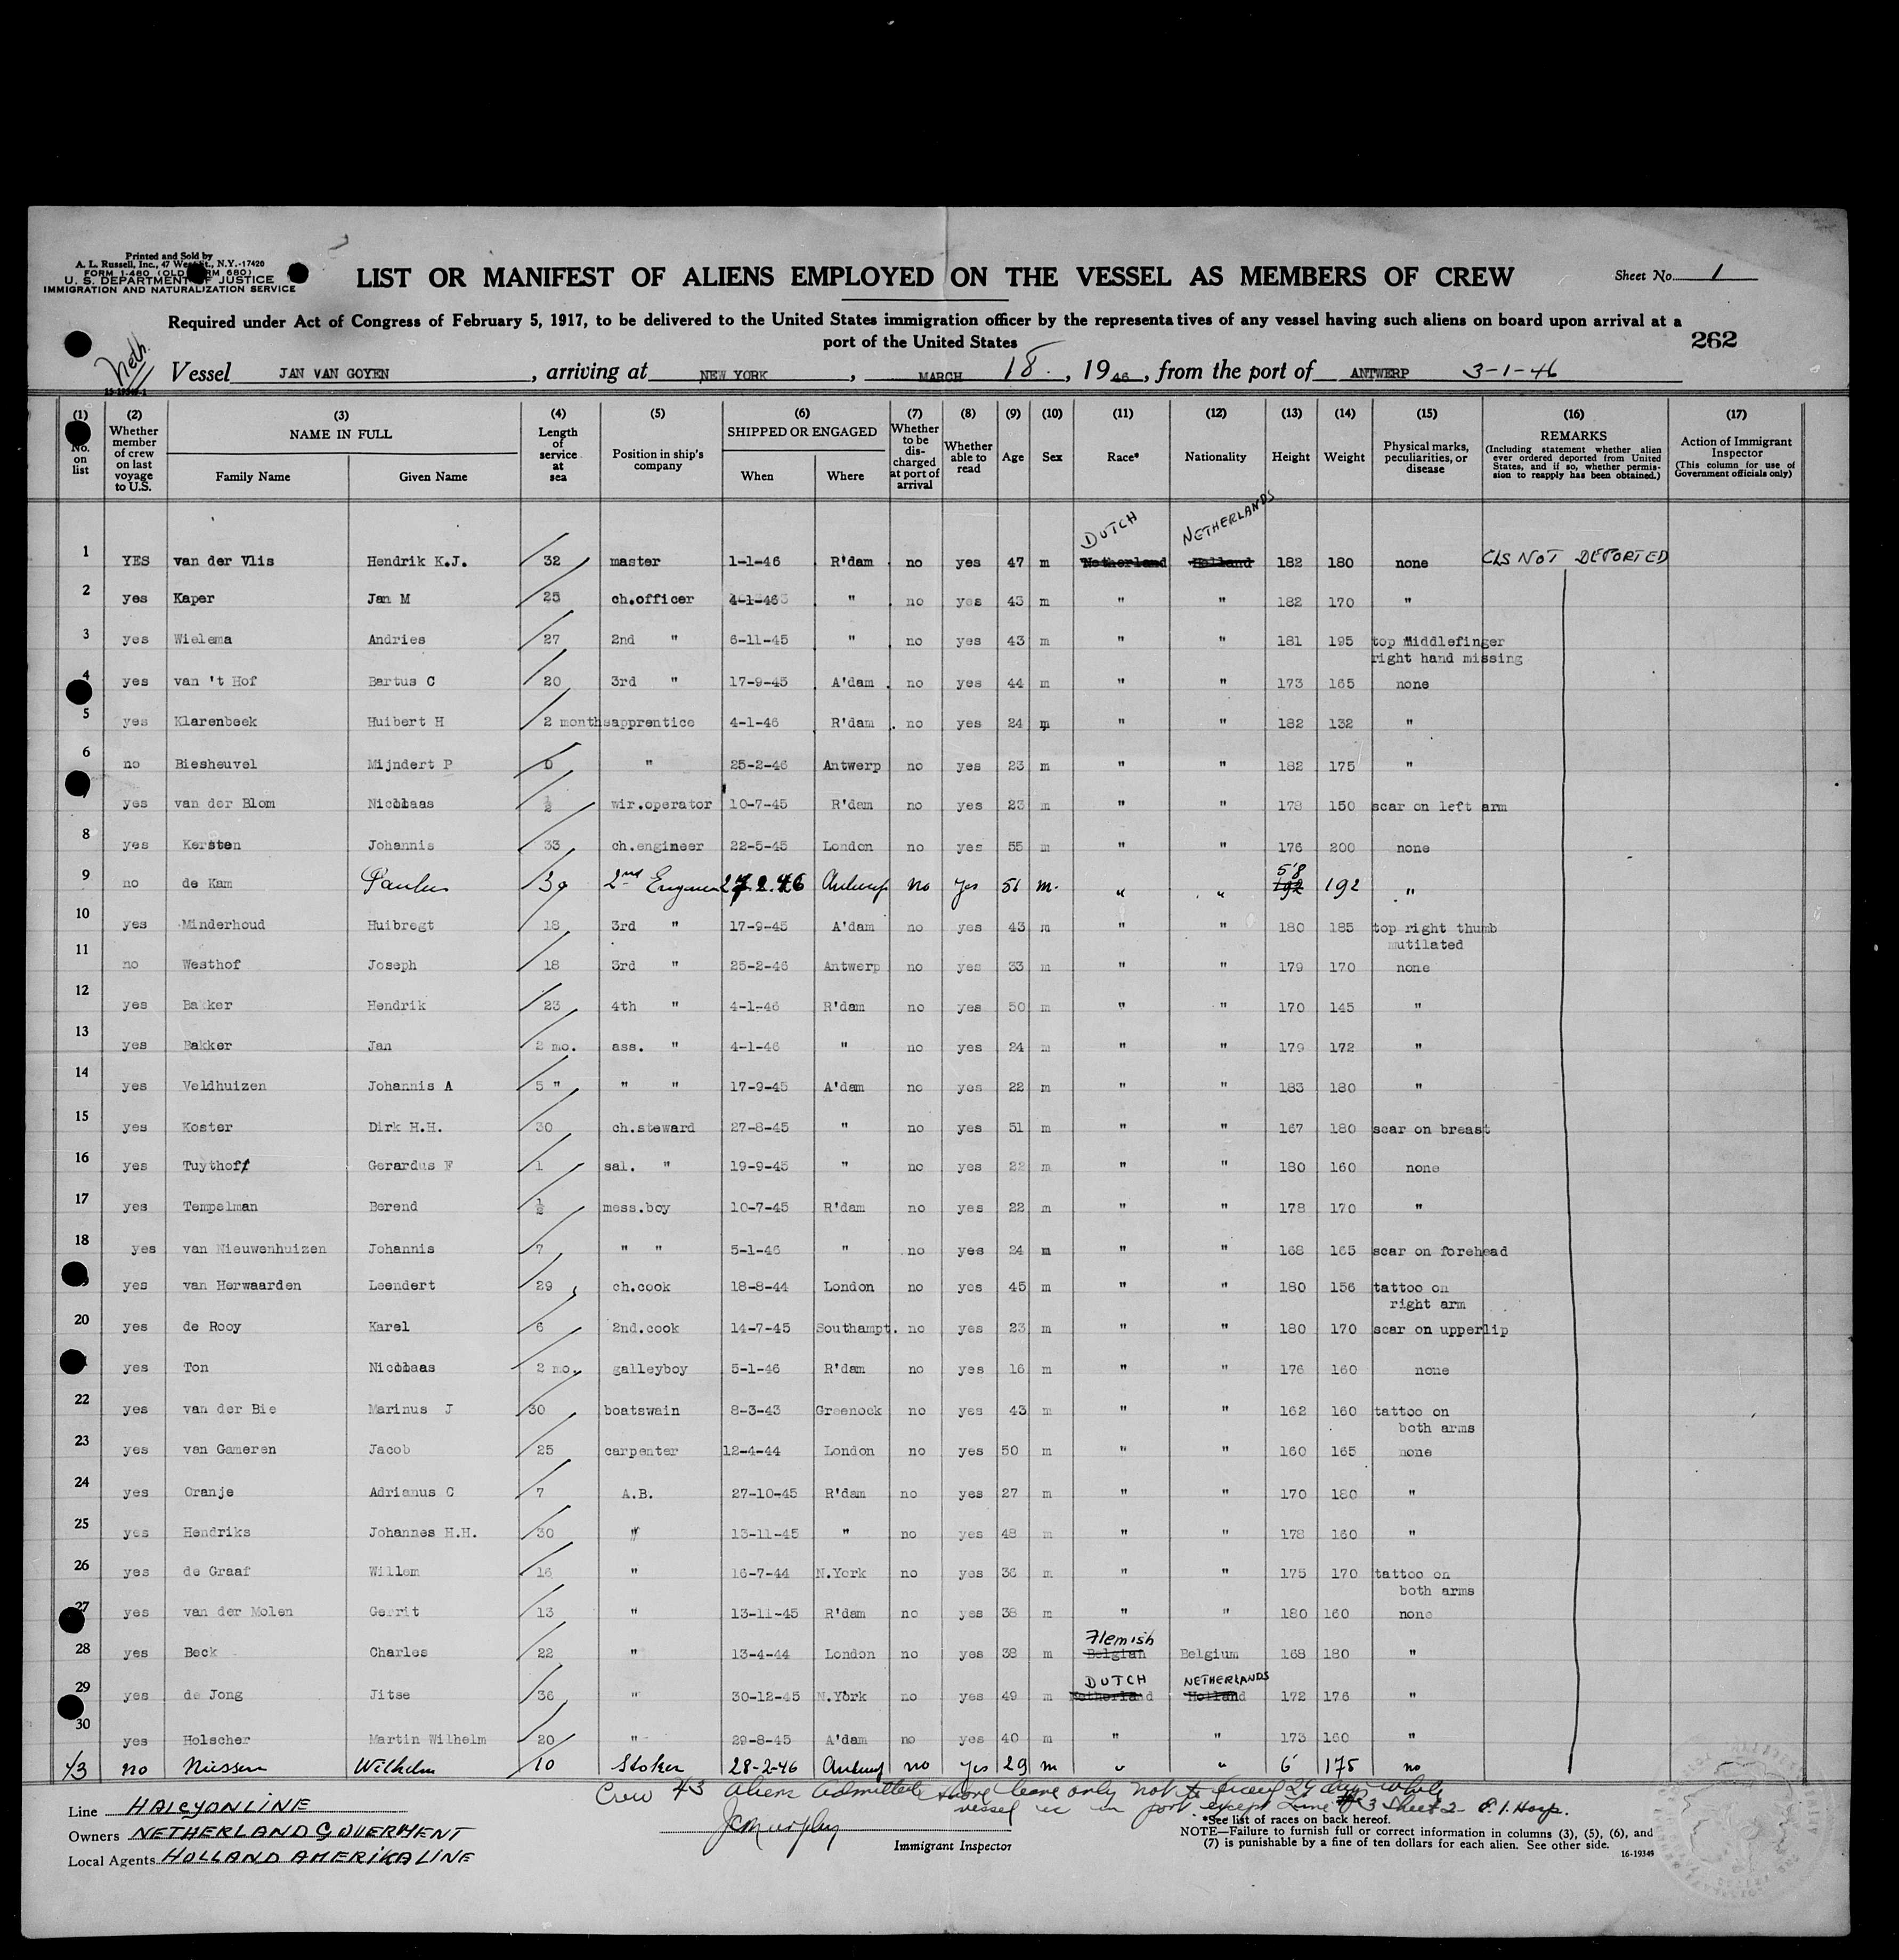 Printed and Sold by
A. L. Russell, Inc., 47 West St., N.Y.-17420
FORM I-480 (OLD FORM 680)
U. S. DEPARTMENT OF JUSTICE
IMMIGRATION AND NATURALIZATION SERVICE
LIST OR MANIFEST OF ALIENS EMPLOYED ON THE VESSEL AS MEMBERS OF CREW
Sheet No. 1
Required under Act of Congress of February 5, 1917, to be delivered to the United States immigration officer by the representatives of any vessel having such aliens on board upon arrival at a
port of the United States
262
Neth.
Vessel JAN VAN GOYEN, arriving at NEW YORK, MARCH 18., 1946, from the port of ANTWERP 3-1-46
(1) No. on list
(2) Whether member of crew on last voyage to U.S.
(3) NAME IN FULL Family Name Given Name
(4) Length of service at sea
(5) Position in ship's company
(6) SHIPPED OR ENGAGED When Where
(7) Whether to be discharged at port of arrival
(8) Whether able to read
(9) Age
(10) Sex
(11) Race*
(12) Nationality
(13) Height
(14) Weight
(15) Physical marks, peculiarities, or disease
(16) REMARKS (Including statement whether alien ever ordered deported from United States, and if so, whether permission to reapply has been obtained.)
(17) Action of Immigrant Inspector (This column for use of Government officials only)
DUTCH NETHERLANDS
1 YES van der Vlis Hendrik K.J. 32 master 1-1-46 R'dam no yes 47 m Netherland Holland 182 180 none CLS NOT DEPORTED
2 yes Kaper Jan M 25 ch.officer 4-1-46 " no yes 43 m " " 182 170 "
3 yes Wielema Andries 27 2nd " 6-11-45 " no yes 43 m " " 181 195 top middlefinger
right hand missing
4 yes van 't Hof Bartus C 20 3rd " 17-9-45 A'dam no yes 44 m " " 173 165 none
5 yes Klarenbeek Huibert H 2 months apprentice 4-1-46 R'dam no yes 24 m " " 182 132 "
6 no Biesheuvel Mijndert P 0 " 25-2-46 Antwerp no yes 23 m " " 182 175 "
7 yes van der Blom Nicolaas ½ wir.operator 10-7-45 R'dam no yes 23 m " " 178 150 scar on left arm
8 yes Kersten Johannis 33 ch.engineer 22-5-45 London no yes 55 m " " 176 200 none
5'8
9 no de Kam Paulus 39 2nd Engineer 27.2.46 Antwerp no yes 51 m. " " 192 192 "
10 yes Minderhoud Huibregt 18 3rd " 17-9-45 A'dam no yes 43 m " " 180 185 top right thumb
mutilated
11 no Westhof Joseph 18 3rd " 25-2-46 Antwerp no yes 33 m " " 179 170 none
12 yes Bakker Hendrik 23 4th " 4-1-46 R'dam no yes 50 m " " 170 145 "
13 yes Bakker Jan 2 mo. ass. " 4-1-46 " no yes 24 m " " 179 172 "
14 yes Veldhuizen Johannis A 5 " " " 17-9-45 A'dam no yes 22 m " " 183 180 "
15 yes Koster Dirk H.H. 30 ch.steward 27-8-45 " no yes 51 m " " 167 180 scar on breast
16 yes Tuythoff Gerardus F 1 sal. " 19-9-45 " no yes 22 m " " 180 160 none
17 yes Tempelman Berend ½ mess.boy 10-7-45 R'dam no yes 22 m " " 178 170 "
18 yes van Nieuwenhuizen Johannis 7 " " 5-1-46 " no yes 24 m " " 168 165 scar on forehead
yes van Herwaarden Leendert 29 ch.cook 18-8-44 London no yes 45 m " " 180 156 tattoo on
right arm
20 yes de Rooy Karel 6 2nd.cook 14-7-45 Southampt. no yes 23 m " " 180 170 scar on upperlip
yes Ton Nicolaas 2 mo. galleyboy 5-1-46 R'dam no yes 16 m " " 176 160 none
22 yes van der Bie Marinus J 30 boatswain 8-3-43 Greenock no yes 43 m " " 162 160 tattoo on
both arms
23 yes van Gameren Jacob 25 carpenter 12-4-44 London no yes 50 m " " 160 165 none
24 yes Oranje Adrianus C 7 A.B. 27-10-45 R'dam no yes 27 m " " 170 180 "
25 yes Hendriks Johannes H.H. 30 " 13-11-45 " no yes 48 m " " 178 160 "
26 yes de Graaf Willem 16 " 16-7-44 N.York no yes 36 m " " 175 170 tattoo on
both arms
27 yes van der Molen Gerrit 13 " 13-11-45 R'dam no yes 38 m " " 180 160 none
Flemish
28 yes Beck Charles 22 " 13-4-44 London no yes 38 m Belgian Belgium 168 180 "
DUTCH NETHERLANDS
29 yes de Jong Jitse 36 " 30-12-45 N.York no yes 49 m Netherland Holland 172 176 "
30 yes Holscher Martin Wilhelm 20 " 29-8-45 A'dam no yes 40 m " " 173 160 "
no Niessen Wilhelm 10 Stoker 28-2-46 Antwerp no yes 29 m " " 6' 175 no
Crew 43 aliens admitted shore leave only not to exceed 29 days while
vessel is in port except Line #23 Sheet 2- E.I. Hosp.
Line HALCYONLINE
Owners NETHERLAND GOUVERMENT
Local Agents HOLLAND AMERIKALINE
JCMurphy
Immigrant Inspector
*See list of races on back hereof.
NOTE—Failure to furnish full or correct information in columns (3), (5), (6), and
(7) is punishable by a fine of ten dollars for each alien. See other side.
16-19349